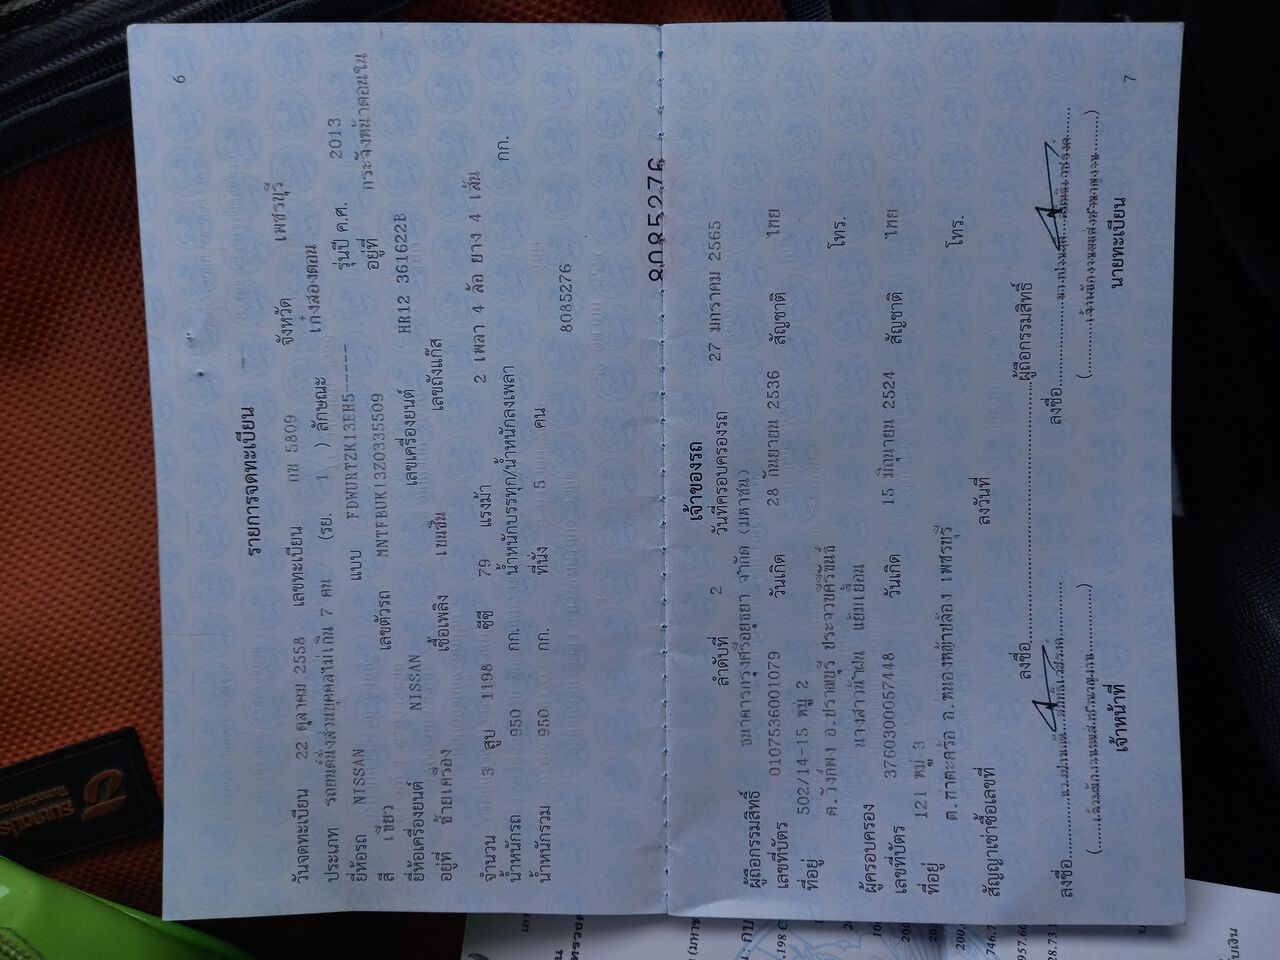 6
รายการจดทะเบียน
วันจดทะเบียน 22 ตุลาคม 2558 เลขทะเบียน กข 5809 จังหวัด เพชรบุรี
ประเภท รถยนต์นั่งส่วนบุคคลไม่เกิน 7 คน (รย. 1 ) ลักษณะ เก๋งสองตอน
ยี่ห้อรถ NISSAN แบบ FDWURTZK13EH5------ รุ่นปี ค.ศ. 2013
สี เขียว เลขตัวรถ MNTFBUK13Z0335509 อยู่ที่ กระจังหน้าตอนใน
ยี่ห้อเครื่องยนต์ NISSAN เลขเครื่องยนต์ HR12 361622B
อยู่ที่ ซ้ายเครื่อง เชื้อเพลิง เบนซิน เลขถังแก๊ส
จำนวน 3 สูบ 1198 ซีซี 79 แรงม้า 2 เพลา 4 ล้อ ยาง 4 เส้น
น้ำหนักรถ 950 กก. น้ำหนักบรรทุก/น้ำหนักลงเพลา กก.
น้ำหนักรวม 950 กก. ที่นั่ง 5 คน
8085276
8085276
เจ้าของรถ
ลำดับที่ 2 วันที่ครอบครองรถ 27 มกราคม 2565
ผู้ถือกรรมสิทธิ์ ธนาคารกรุงศรีอยุธยา จำกัด (มหาชน)
เลขที่บัตร 0107536001079 วันเกิด 28 กันยายน 2536 สัญชาติ ไทย
ที่อยู่ 502/14-15 หมู่ 2
ต.วังก์พง อ.ปราณบุรี ประจวบคีรีขันธ์ โทร.
ผู้ครอบครอง นางสาวน้ำฝน แย้มเยื้อน
เลขที่บัตร 3760300057448 วันเกิด 15 มิถุนายน 2524 สัญชาติ ไทย
ที่อยู่ 121 หมู่ 3
ต.ท่าตะคร้อ อ.หนองหญ้าปล้อง เพชรบุรี โทร.
สัญญาเช่าซื้อเลขที่ ลงวันที่
ลงชื่อ ผู้ถือกรรมสิทธิ์
ลงชื่อ ลงชื่อ
เจ้าหน้าที่ นายทะเบียน
7